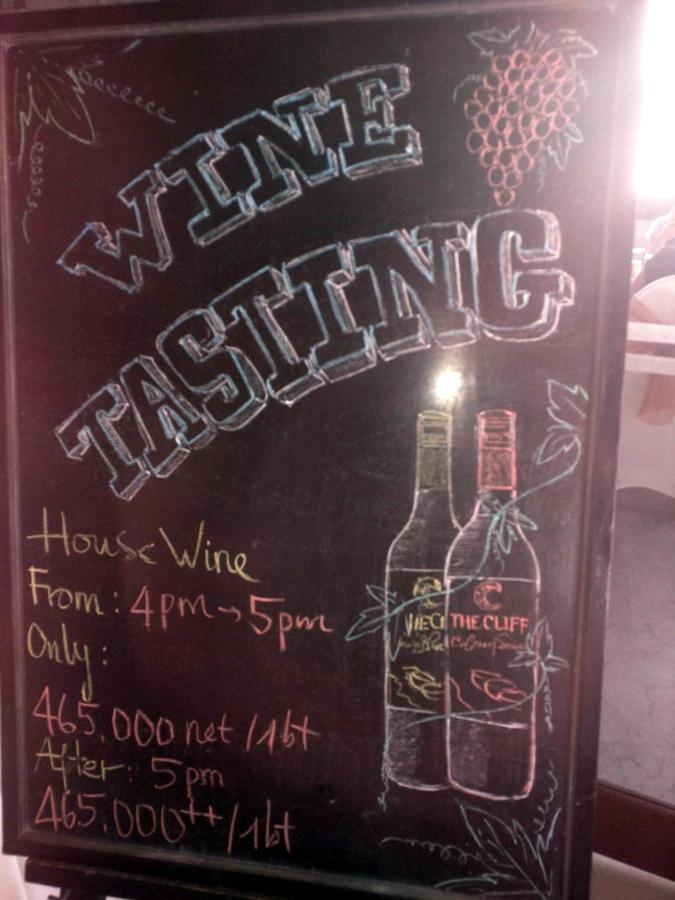 WINE
TASTING
House Wine
From: 4pm → 5pm
Only:
465.000 net /1bt
After: 5pm
465.000++/1bt
THE CLIFF